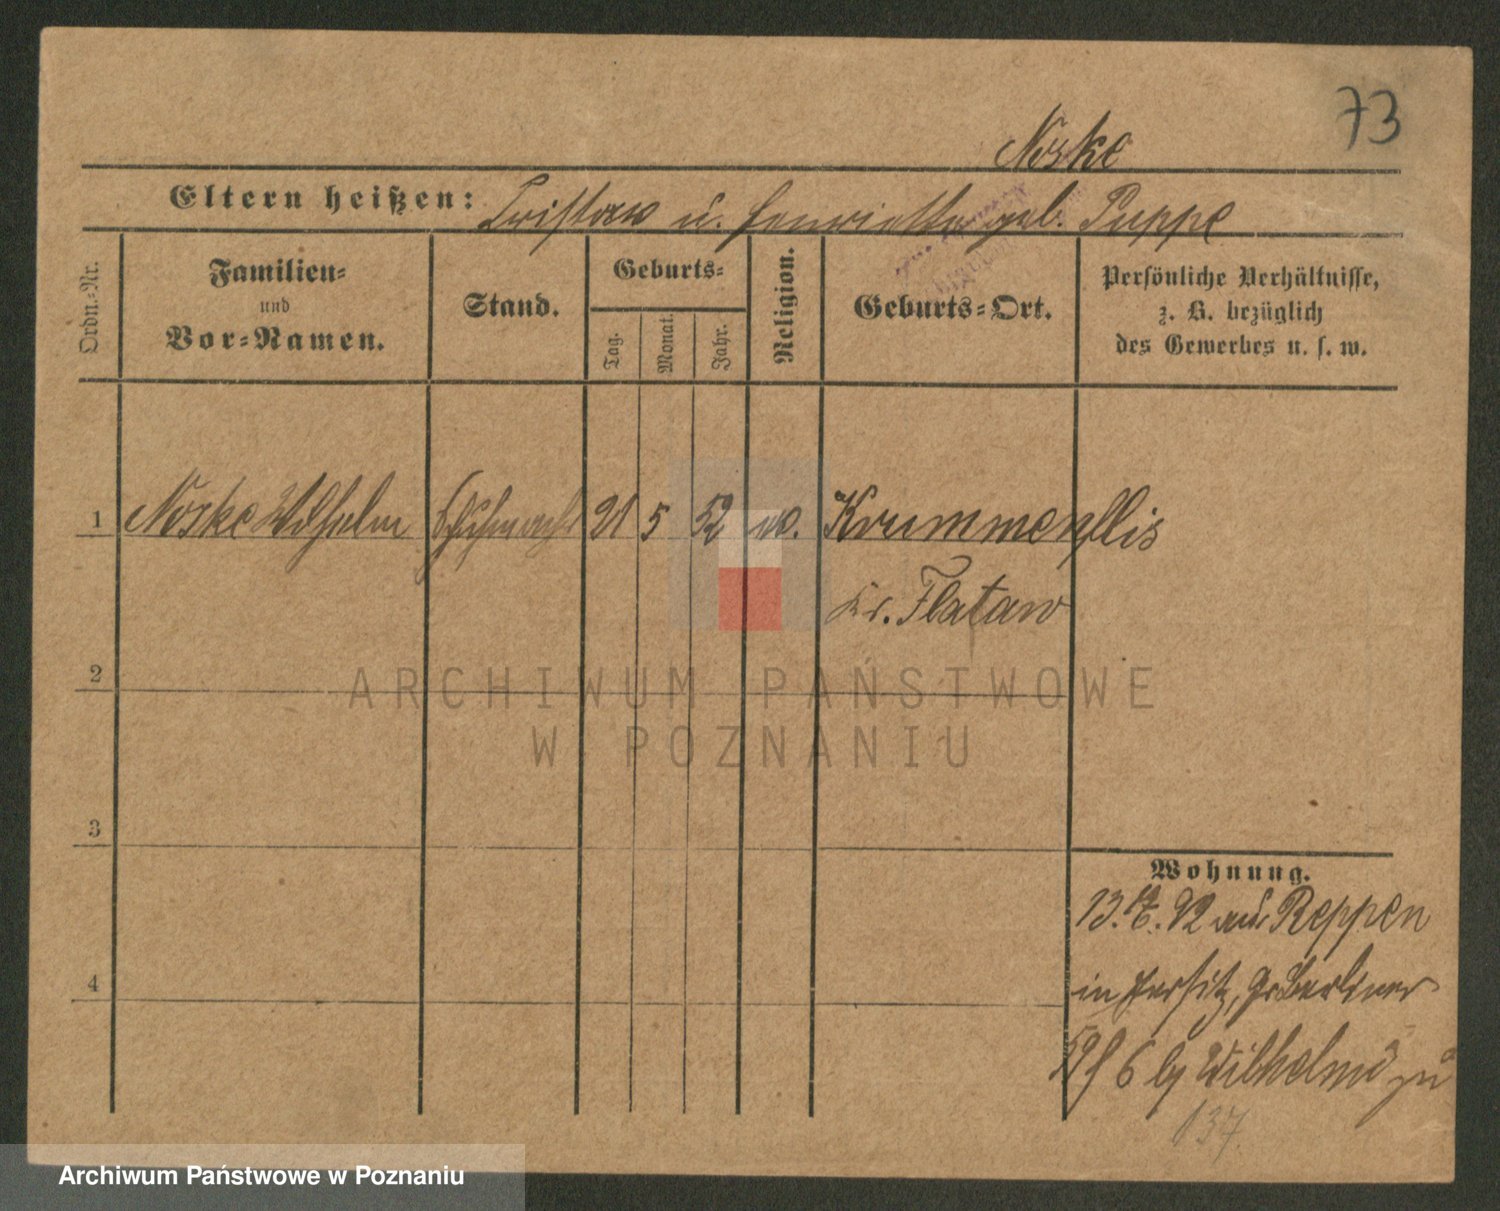 73
Noske
Eltern heißen: Tristow u. Henriette geb. Puppe
Ordn.-Nr.
Familien-
und
Vor-Namen.
Stand.
Geburts-
Tag.
Monat.
Jahr.
Religion.
Geburts-Ort.
Persönliche Verhältnisse,
z. B. bezüglich
des Gewerbes u. s. w.
1 Noske Wilhelm 21 5 52 Krummenflis
Kr. Flatow
2
3
4
Wohnung.
13. 92 aus Reppen
in Jersitz, Gr Berliner
6 Wilhelmi zu
137.
ARCHIWUM PAŃSTWOWE
W POZNANIU
Archiwum Państwowe w Poznaniu